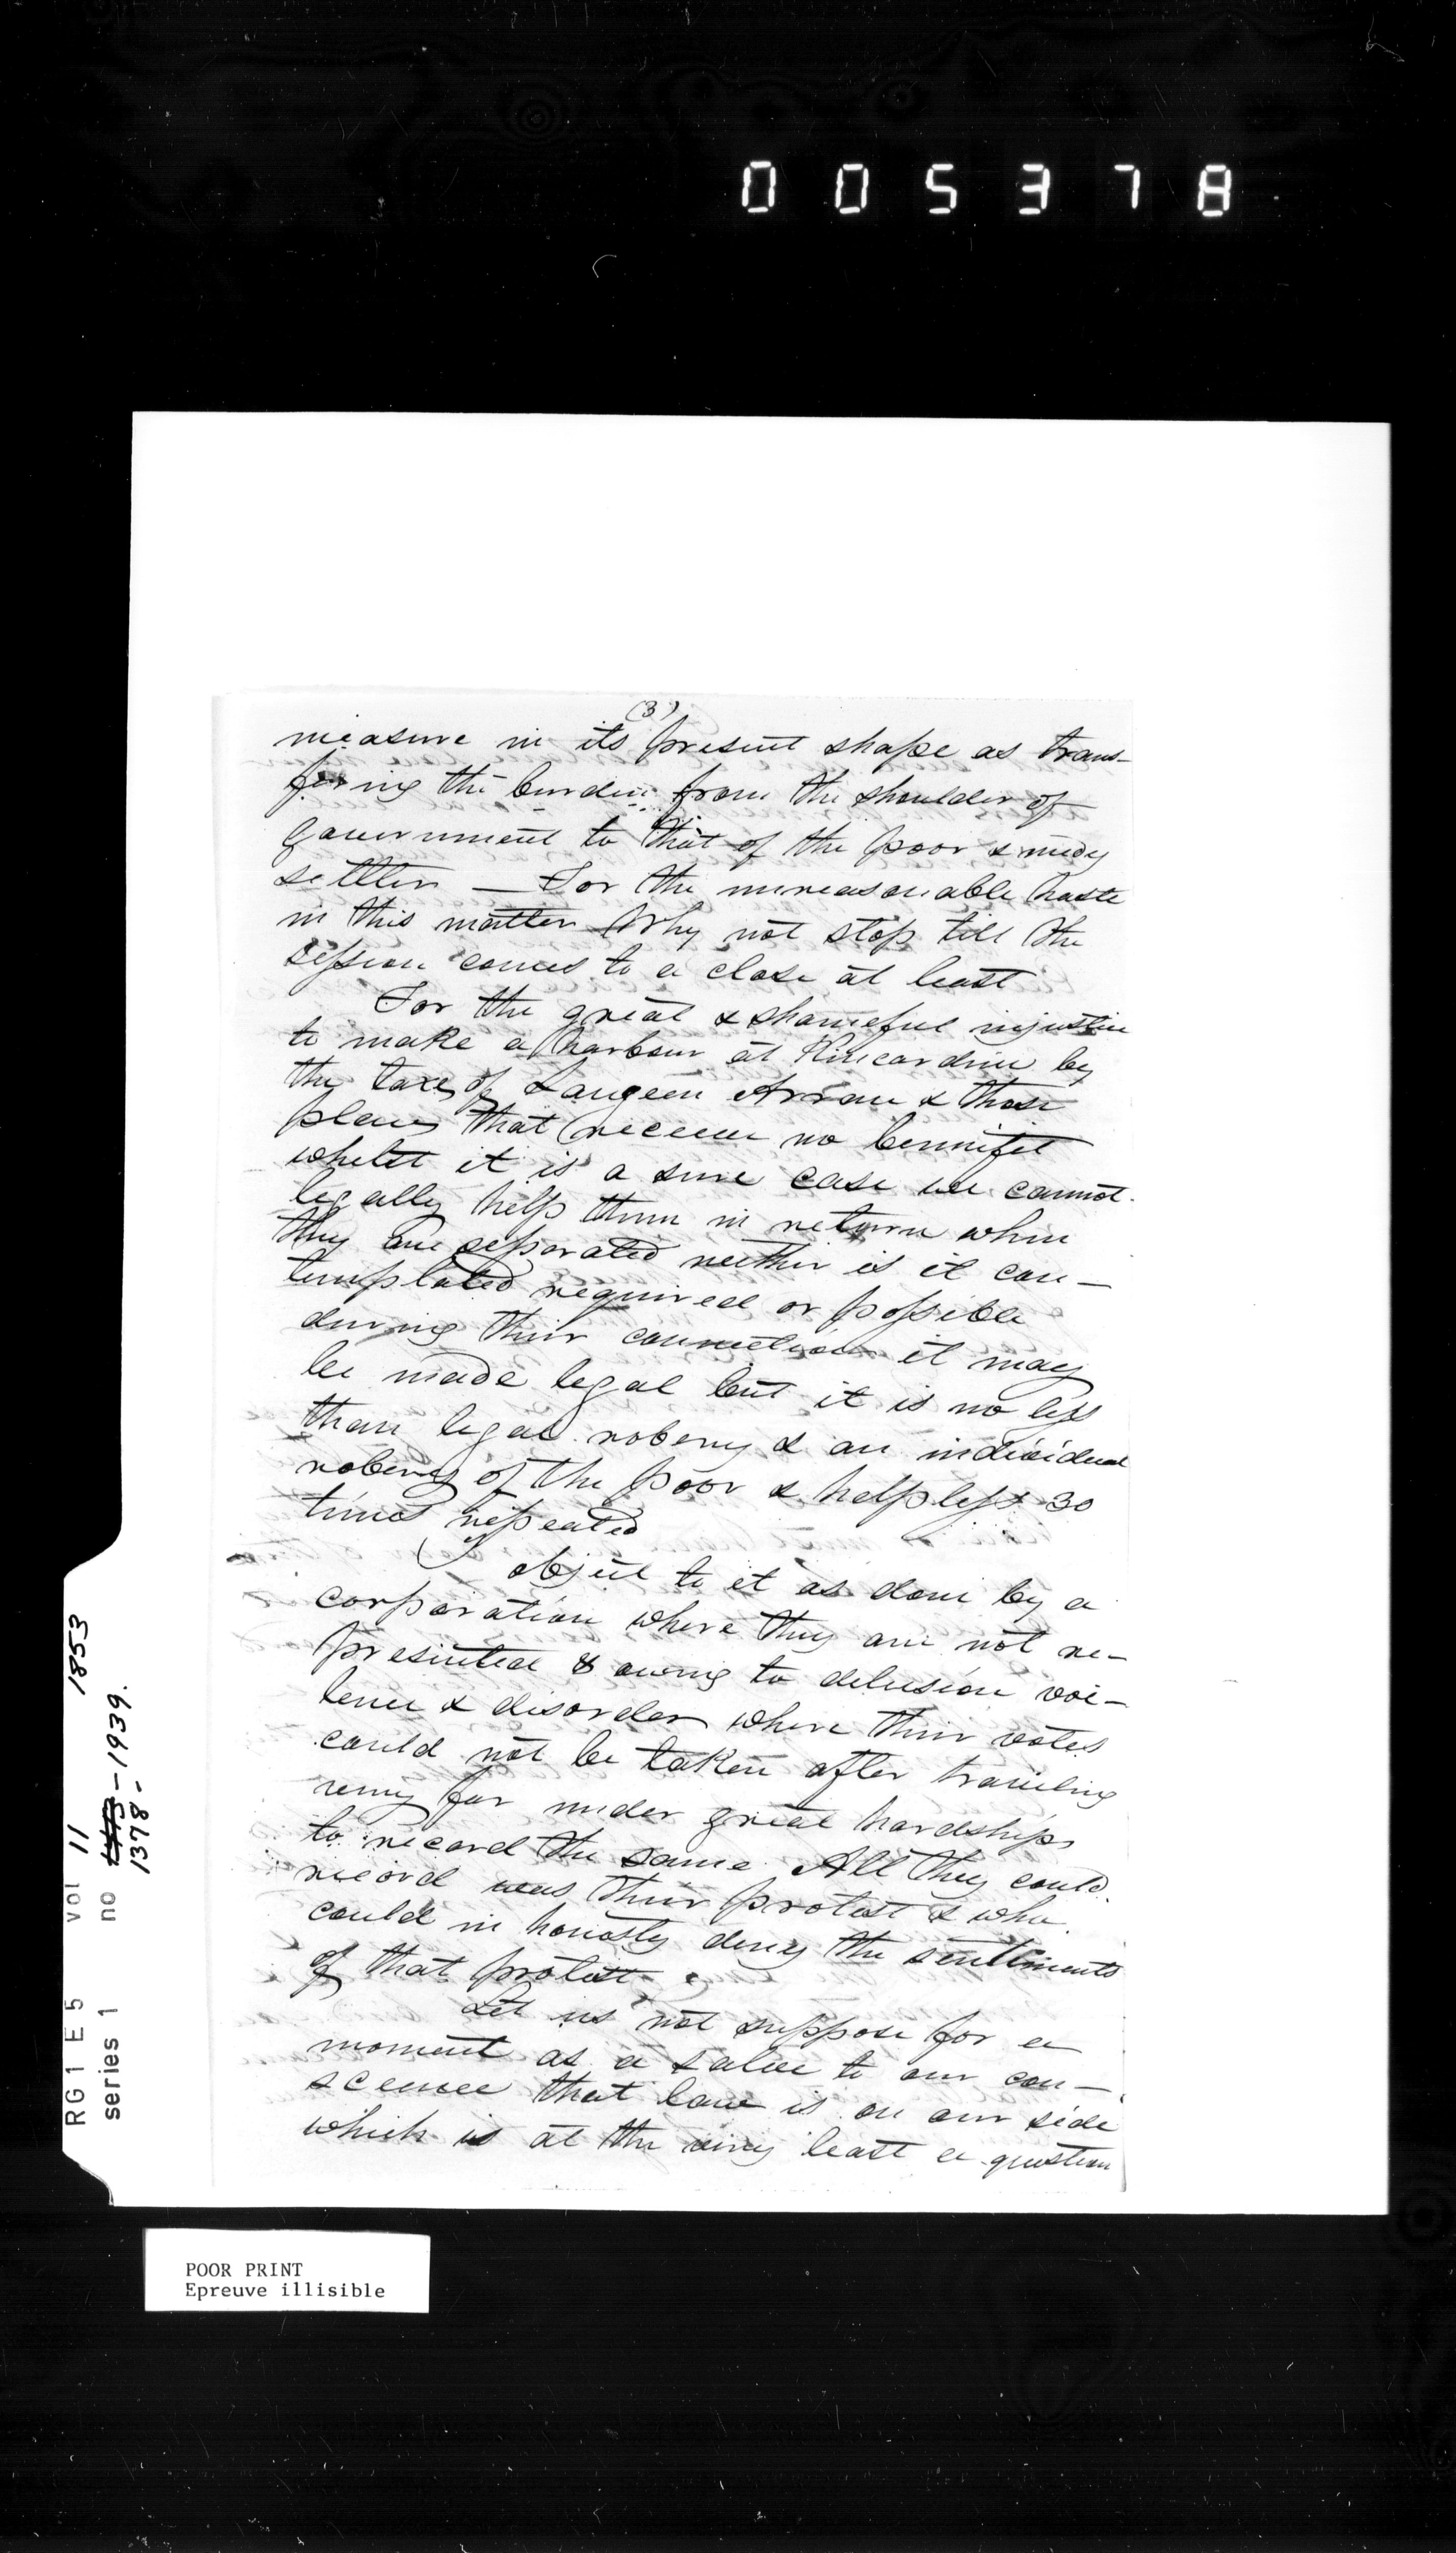 005378
(3)
measure in its present shape as trans-
fering the burden from the shoulder of
government to that of the poor & needy
settler — For the unreasonable haste
in this matter Why not stop till the
session comes to a close at least
For the great & shameful injustice
to make a harbour at Kincardine by
the taxes of Saugeen Arran & those
places that receive no bennifit
whilst it is a sure case we cannot
legally help them in return when
they are separated neither is it con-
templated required or possible
during their connection it may
be made legal but it is no less
than legal robery & an individual
robery of the poor & helpless 30
times repeated
I object to it as done by a
corporation where they are not re-
presented & owing to delusion voi-
lence & disorder where their votes
could not be taken after traveling
very far under great hardships
to record the same. All they could
record was their protest & who
could in honesty deny the sentiments
of that protest.
Let us not suppose for a
moment as a salve to our con-
science that law is on our side
which is at the very least a question
RG 1 E 5 vol 11 1853
series 1 no 1378-1939.
POOR PRINT
Epreuve illisible